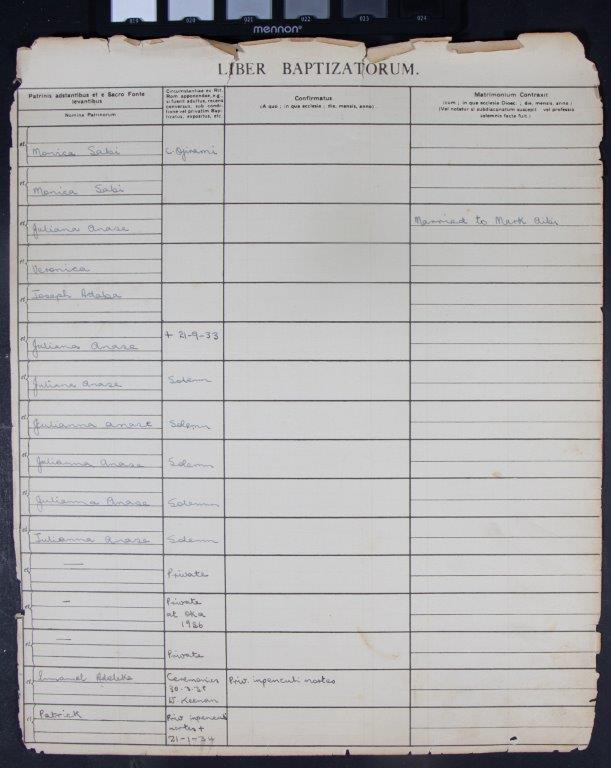 019 020 021 022 023 024
mennon
LIBER BAPTIZATORUM.
Patrinis adstantibus et e Sacro Fonte
levantibus
Nomina Patrinorum
Circumstantiae ex Rit.
Rom. apponendae, e.g.,
si fuerit adultus, recens
conversus, sub condi-
tione vel privatim Bap-
tizatus, expositus, etc.
Confirmatus
(A quo ; in qua ecclesia ; die, mensis, anno)
Matrimonium Contraxit
(cum ; in qua ecclesia Dioec: ; die, mensis, anno)
(Vel notatur si subdiaconatum suscepit vel professio
solemnis facta fuit.)
et Monica Sabi C. Ojirami
et Monica Sabi
et Juliana Anase Married to Mark
et Veronica
et Joseph Adaba
et Juliana Anase + 21-9-33
et Juliana Anase Solemn
et Julianna Anase Solemn
et Julianna Anase Solemn
et Julianna Anase Solemn
et Julianna Anase Solemn
et — Private
et — Private
at Oka
1936
et — Private
et Emanuel Adeleke Ceremonies Priv. in periculi mortes
W. Keenan
et Patrick Priv in periculi
mortes +
21-1-34